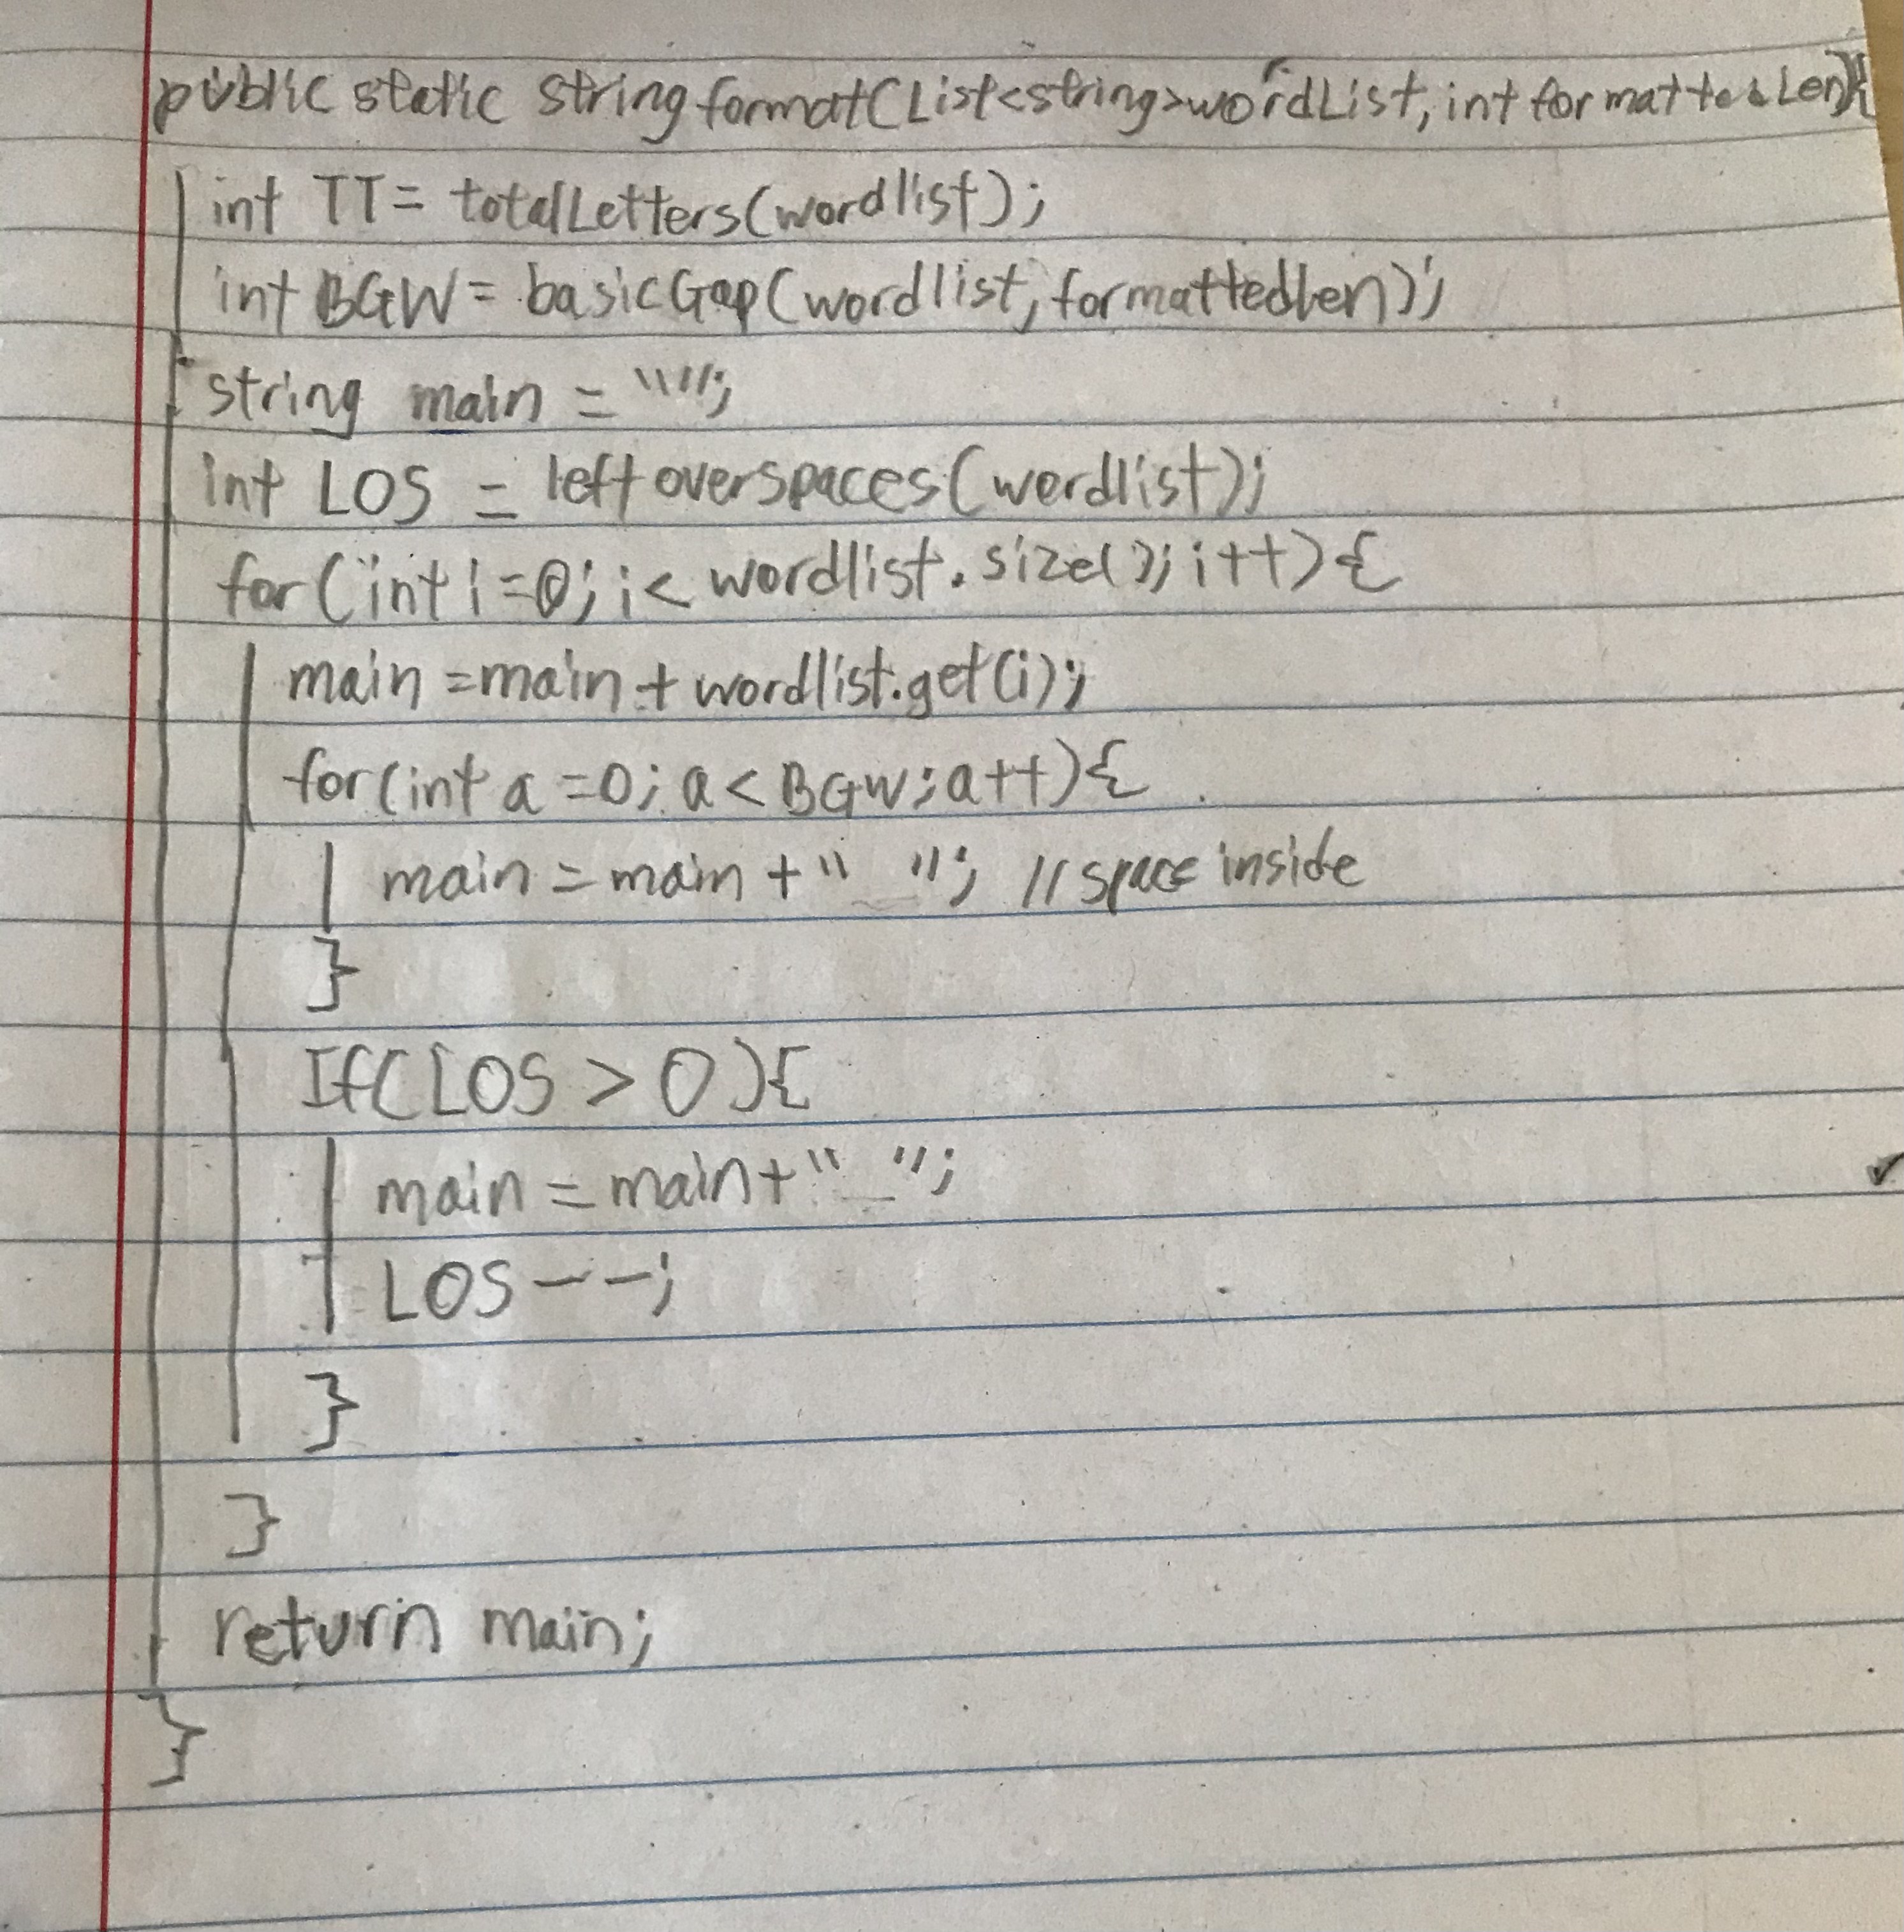 public static string format(List<string>wordList, int formattedLen){
int TT = totalLetters(wordlist);
int BGW = basicGap(wordlist, formattedLen);
string main = "";
int LOS = leftoverspaces(wordlist);
for(int i=0; i< wordlist.size(); i++){
main =main + wordlist.get(i);
for(int a =0; a < BGW; a++){
main = main + " "; // space inside
}
If(LOS > 0){
main = main+" ";
LOS--;
}
}
return main;
}